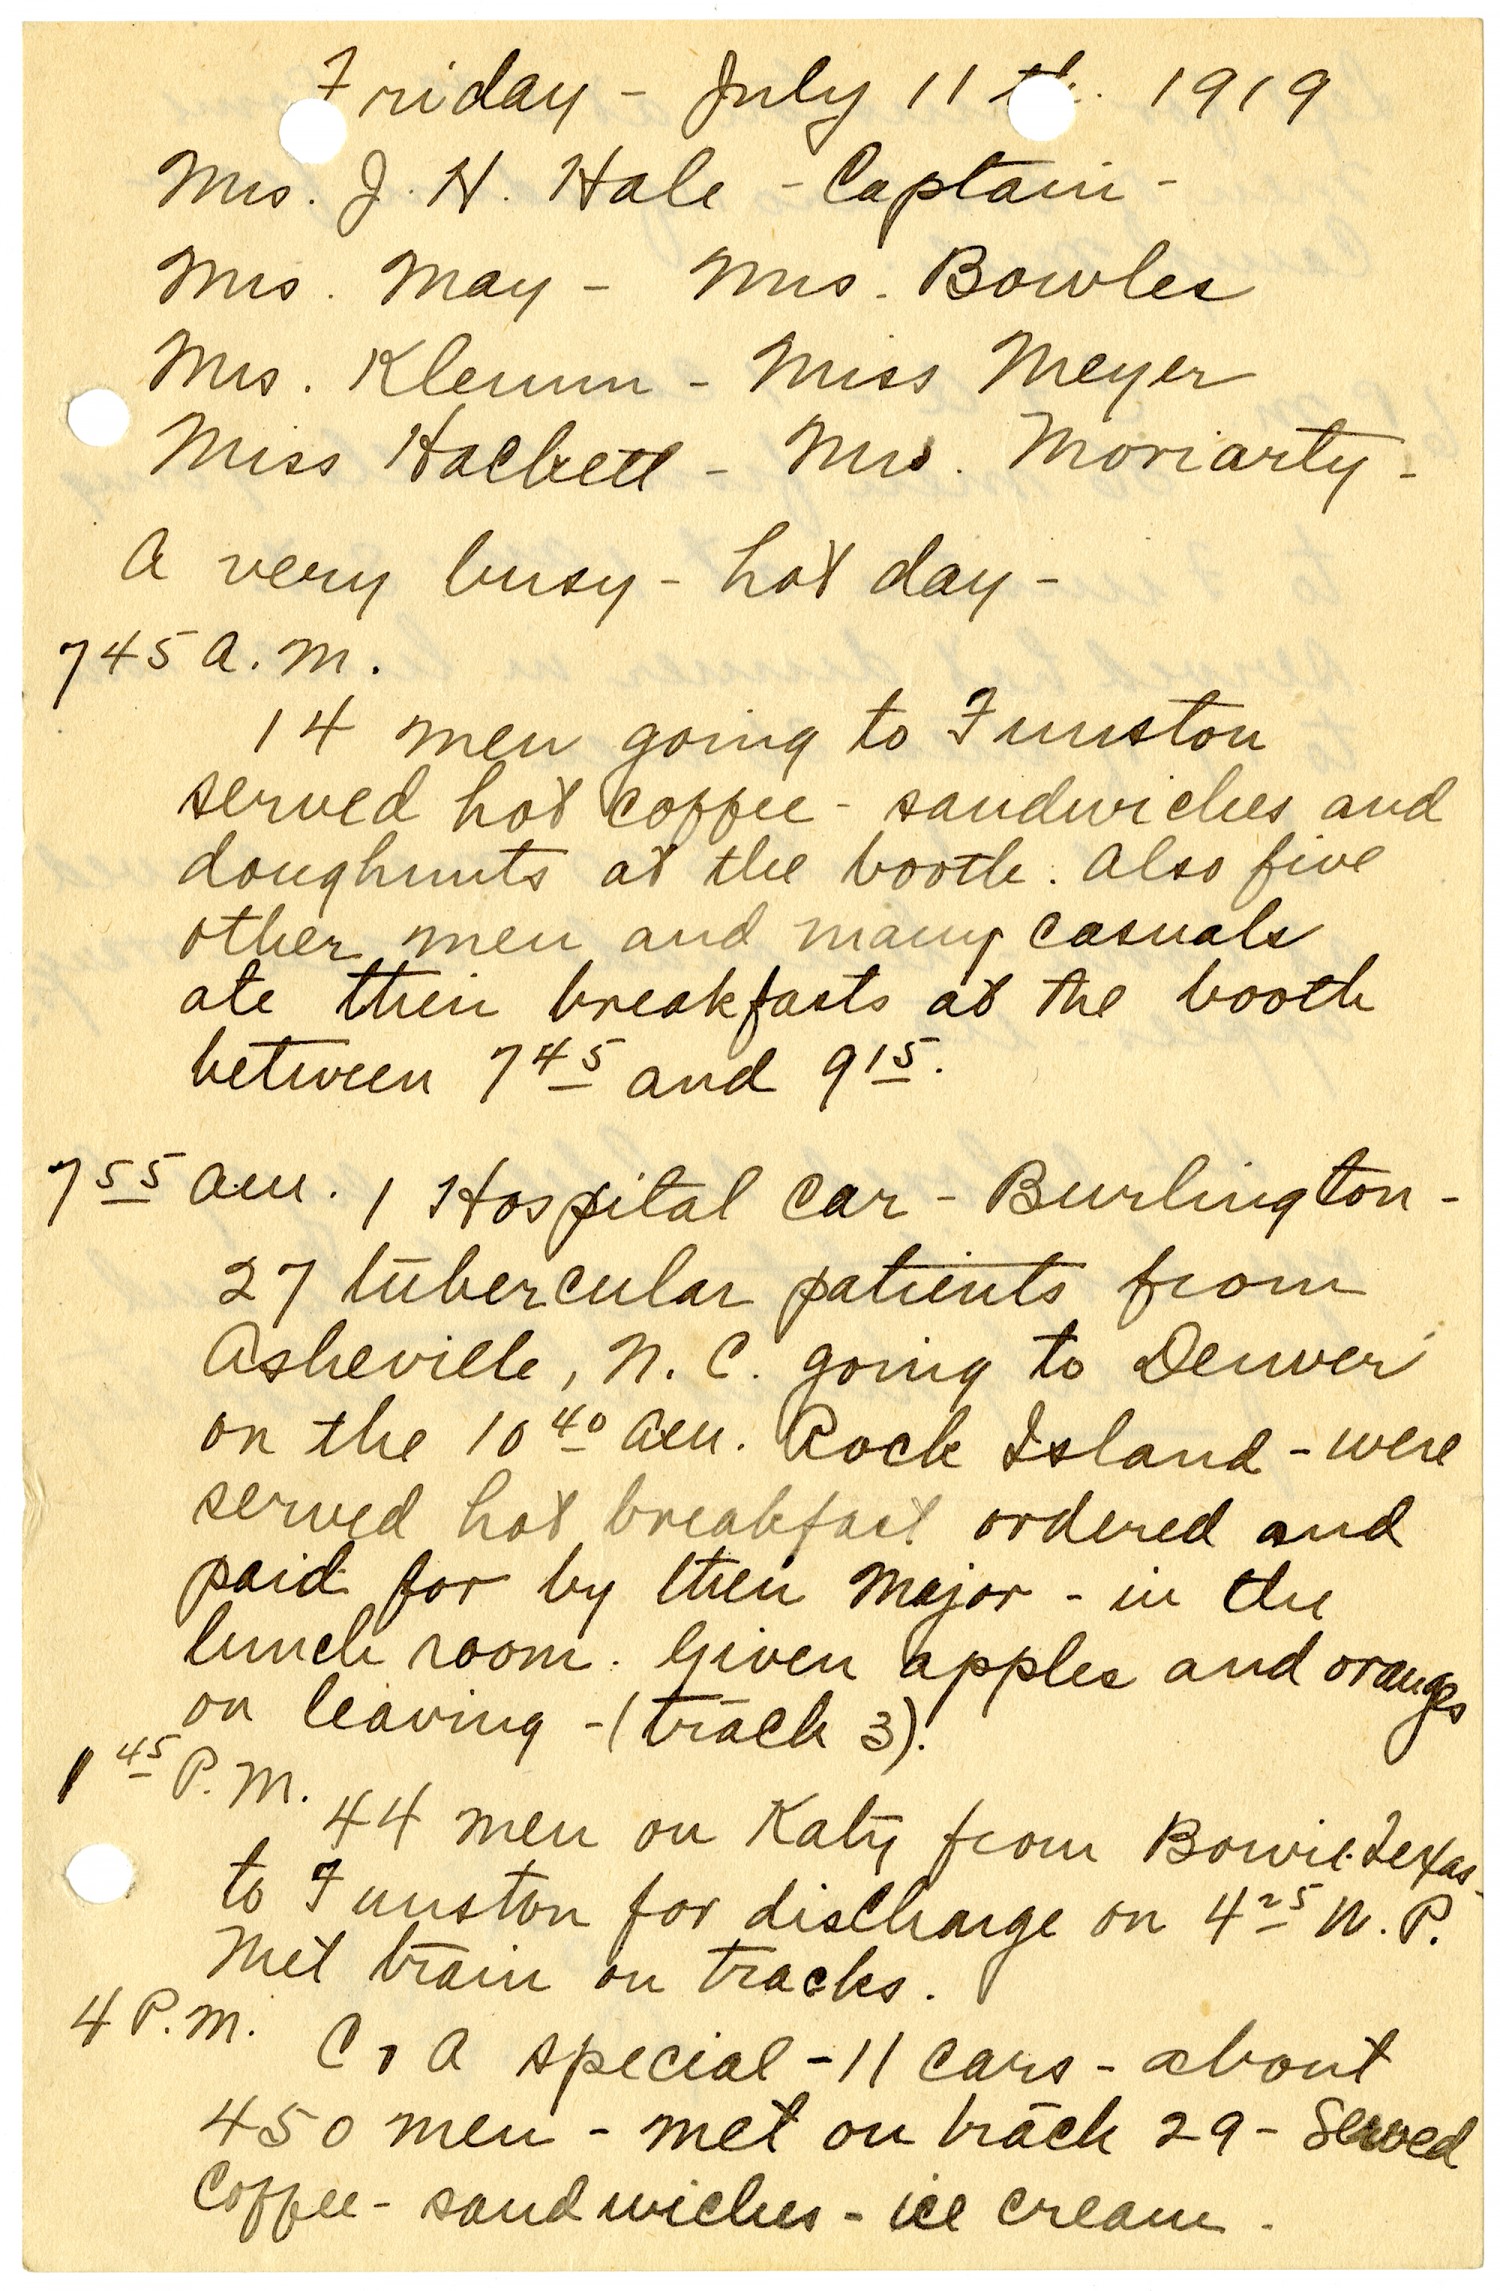 Friday - July 11th. 1919
Mrs. J. H. Hale - Captain -
Mrs. May - Mrs. Bowles
Mrs. Klemm - Miss Meyer
Miss Hackett - Mrs. Moriarty -
A very busy - hot day -
7 45 A. M.
14 men going to Funston
served hot coffee - sandwiches and
doughnuts at the booth. Also five
other men and many casuals
ate their breakfasts at the booth
between 7 45 and 9 15.
7 55 am. 1 Hospital Car - Burlington -
27 tubercular patients from
Asheville, N. C. going to Denver
on the 10 40 am. Rock Island - were
served hot breakfast ordered and
paid for by their Major - in the
lunch room. Given apples and oranges
on leaving - (track 3).
1 45 P. M.
44 men on Katy from Bowie Texas -
to Funston for discharge on 4 25 U. P.
Met train on tracks.
4 P. M.
C & A special - 11 cars - about
450 men - met on track 29 - Served
Coffee - sandwiches - ice cream -